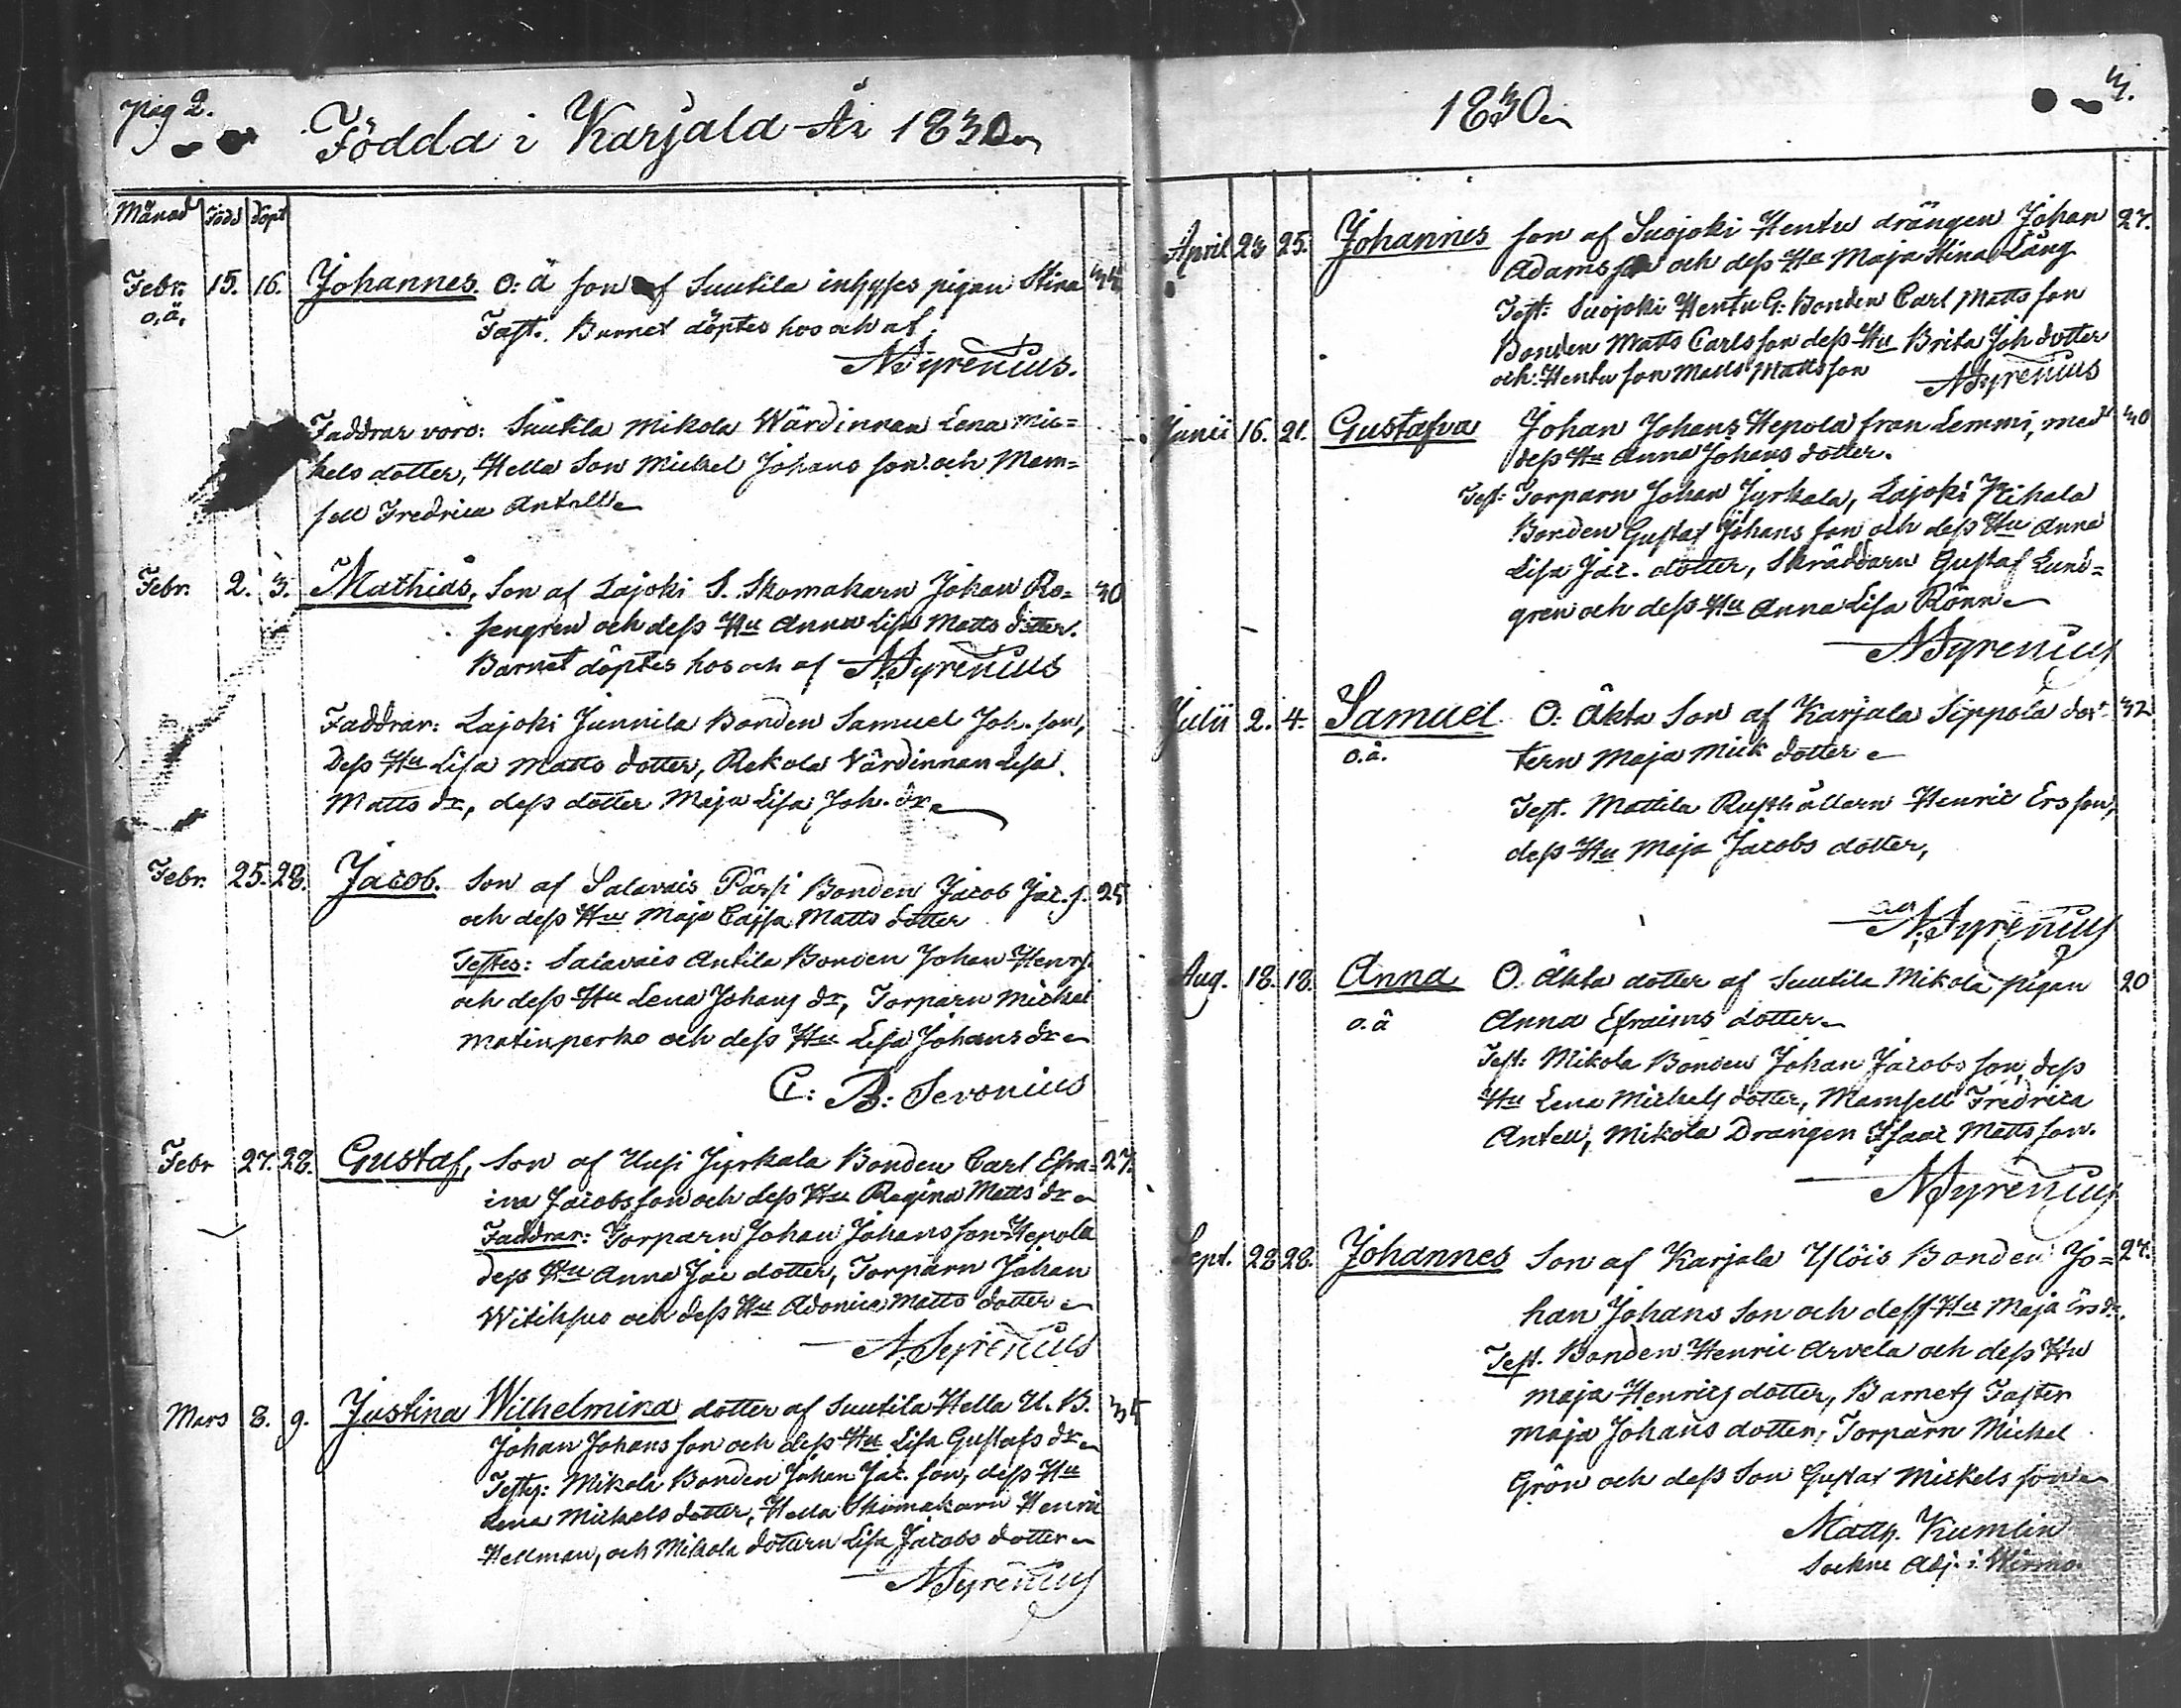 pag 2.
Födda i Karjala År 1830
Månad Född Döpt
Febr. 15. 16. Johannes. O: ä son af Suutila inhyses pigan Stina 44
o,ä, Test. Barnet döptes hos och af
N Syrenius.
Faddrar voro: Suutila Mikola Wärdinnan Lena Mic=
kels dotter, Hella Son Mickel Johans son och Mam=
sell Fredrica Antell
Febr. 2. 3. Mathias, Son af Lajoki S. Skomakarn Johan Ro= 40
sengren och dess Hu Anna Lisa Matts dotter.
Barnet döptes hos och af N Syrenius
Faddrar: Lajoki Junnila Bonden Samuel Joh. son,
Dess Hu Lisa Matts dotter, Rekola Värdinnan Lisa
Matts dr, dess dotter Maja Lisa Joh. dr
Febr. 25. 28. Jacob. Son af Salavais Pärsi Bonden Jacob Jac. s. 25
och dess Hu Maja Cajsa Matts dotter
Testes: Salavais Antila Bonden Johan Henrs.
och dess Hu Lena Johans dr, Torparn Mickel
Matinperko och dess Hu Lisa Johans dr
C: B: Sevonius
Febr 27. 28. Gustaf, Son af Uusi Jyrkala Bonden Carl Efra= 27.
im Jacobsson och dess Hu Regina Matts dr
Faddrar: Torparn Johan Johans son Hepola
dess Hu Anna Jac dotter, Torparn Johan
Witiksuo och dess Hu Adonica Matts dotter
N. Syrenius
Mars 8. 9. Justina Wilhelmina dotter af Suutila Hella U. B. 35
Johan Johans son och dess Hu Lisa Gustafs dr
Testes: Mikola Bonden Johan Jac. son, dess Hu
Lena Mickels dotter, Hella Skomakarn Henric
Hellman, och Mikola dottern Lisa Jacobs dotter
N Syrenius
1830
3.
April 23 25. Johannes son af Suojoki Hentu drängen Johan 27.
Adamsson och dess Hu Maja Stina Lång
Test: Suojoki Hentu G: Bonden Carl Matts son
Bonden Matts Carlsson dess Hu Brita Joh dotter
och Hentu son Matts Mattsson N Syrenius
Junii 16. 21. Gustafva Johan Johans Hepola från Lemmi, med 40
dess Hu Anna Johans dotter.
Test: Torparn Johan Jyrkala, Lajoki
Bonden Gustaf Johans son och dess Hu Anna
Lisa Jac. dotter, Skräddarn Gustaf Lund=
gren och dess Hu Anna Lisa Rönn
N Syrenius
Julii 2. 4. Samuel O: Äkta Son af Karjala Sippola dot= 32
o.ä. tern Maja Mick dotter
Test. Mattila Rusthållarn Henric Ers son,
dess Hu Maja Jacobs dotter,
N. Syrenius
Aug. 18. 18. Anna O. Äkta dotter af Suutila Mikola pigan 20
o.ä Anna Efraims dotter
Test: Mikola Bonden Johan Jacobs son, dess
Hu Lena Mickels dotter, Mamsell Fredrica
Antell, Mikola Drängen Isaac Matts son.
N Syrenius
Sept. 28 28. Johannes Son af Karjala Ylöis Bonden Jo= 27.
han Johans Son och dess Hu Maja Ers dr.
Test. Bonden Henric Arvela och dess Hu
Maja Henrics dotter, Barnets Faster
Maja Johans dotter, Torparn Mickel
Grön och dess Son Gustaf Mickels son
Matth. Kumlin
Sockne Adj. i Wirmo.